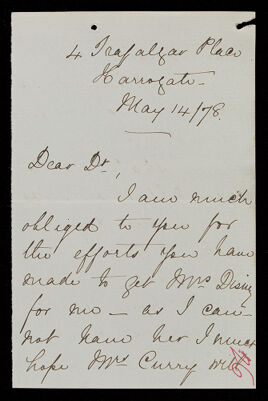 4 Trafalgar Place
Harrogate
May 14/78
Dear Dr,
I am much
obliged to you for
the efforts you have
made to get Mrs
for me — as I can-
not have her I must
hope Mrs Curry will